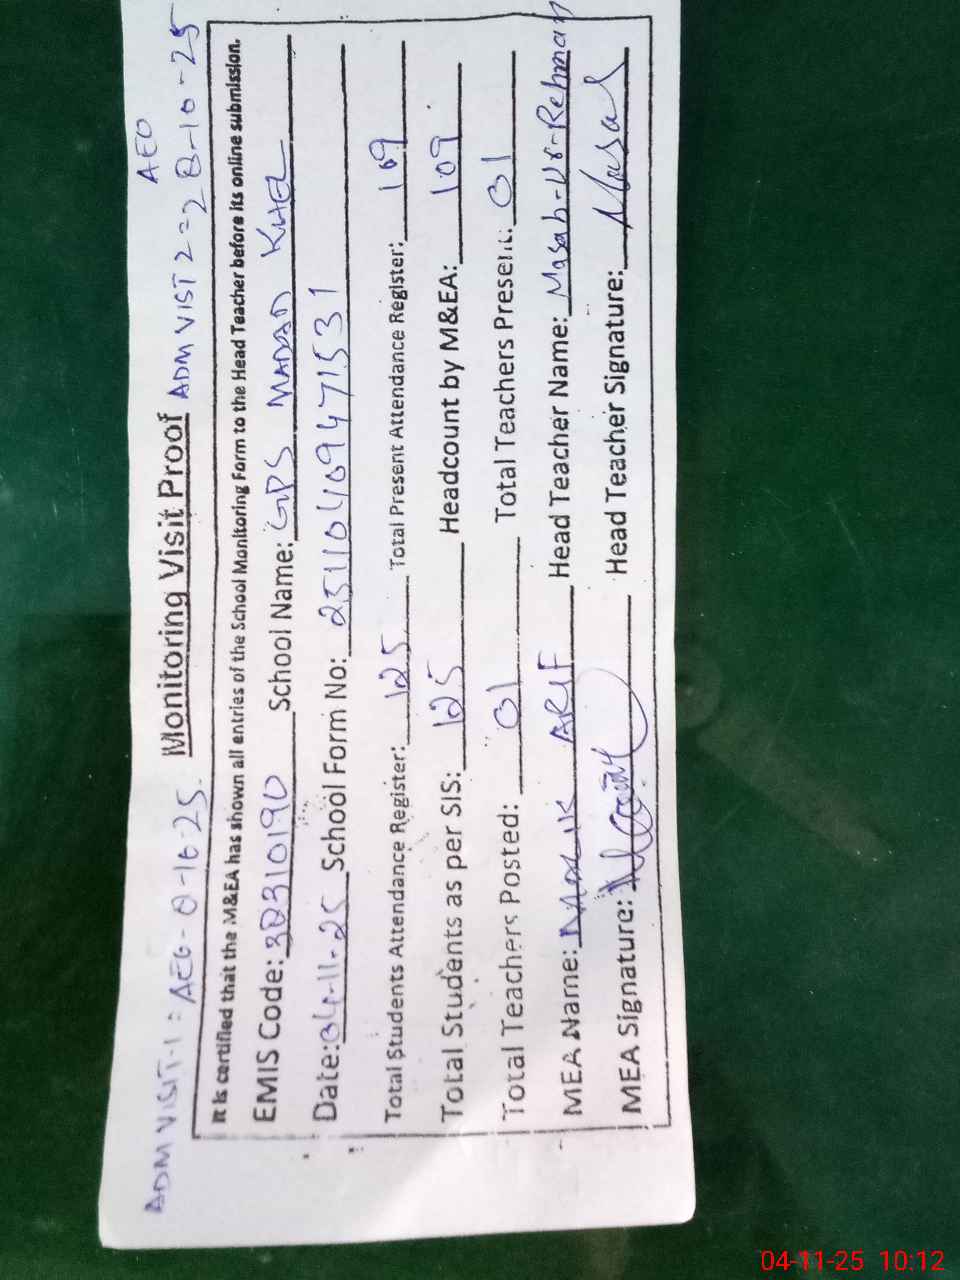 ADM VISIT-1 : AEO - 8-10-25.
AEO
Monitoring Visit Proof ADM VIST 2 = 28-10-25
It is certified that the M&EA has shown all entries of the School Monitoring Form to the Head Teacher before its online submission.
EMIS Code: 38310190 School Name: GPS MADAD KHEL
Date: 04-11-25 School Form No: 25110409471531
Total Students Attendance Register: 125 Total Present Attendance Register: 109
Total Students as per SIS: 125 Headcount by M&EA: 109
Total Teachers Posted: 01 Total Teachers Present: 01
MEA Name: Malik ARIF Head Teacher Name: Masab-Ur-Rehman
MEA Signature: Head Teacher Signature: Masab
04-11-25 10:12